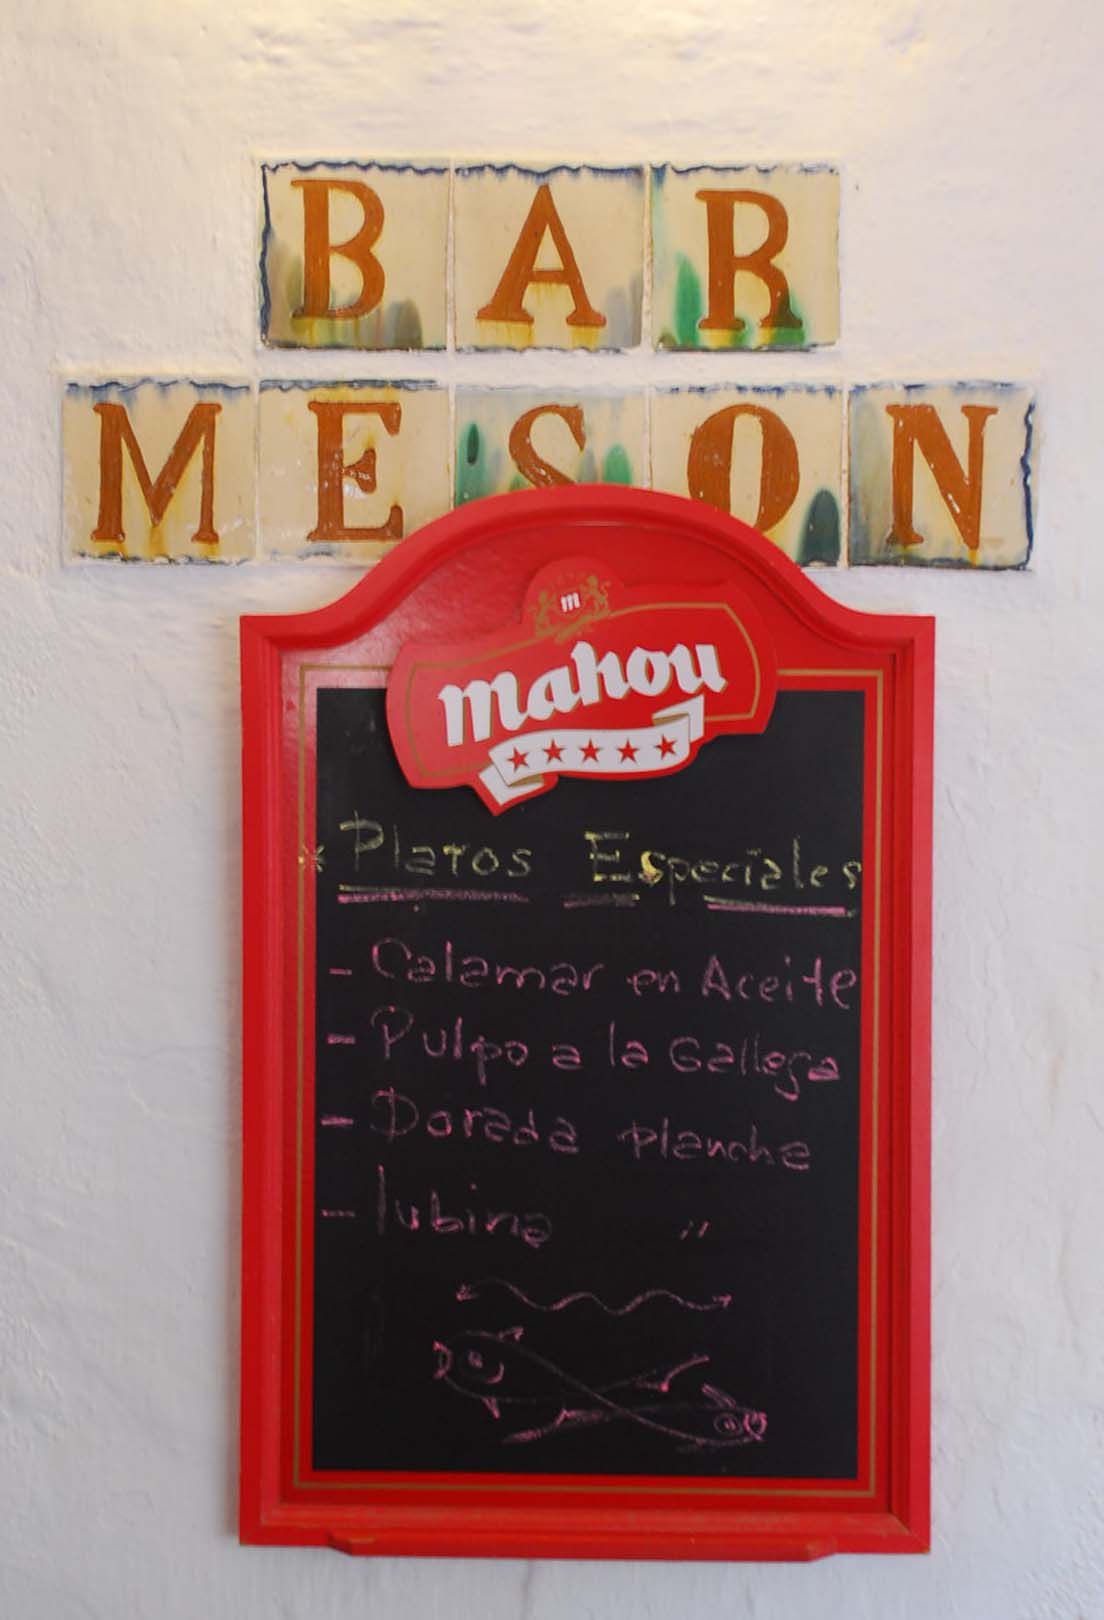 BAR
MESON
m
mahou
* Platos Especiales
- Calamar en Aceite
- Pulpo a la Gallega
- Dorada Plancha
- lubina "